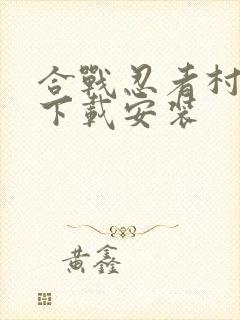 合戰忍者村
下載安裝
黃鑫